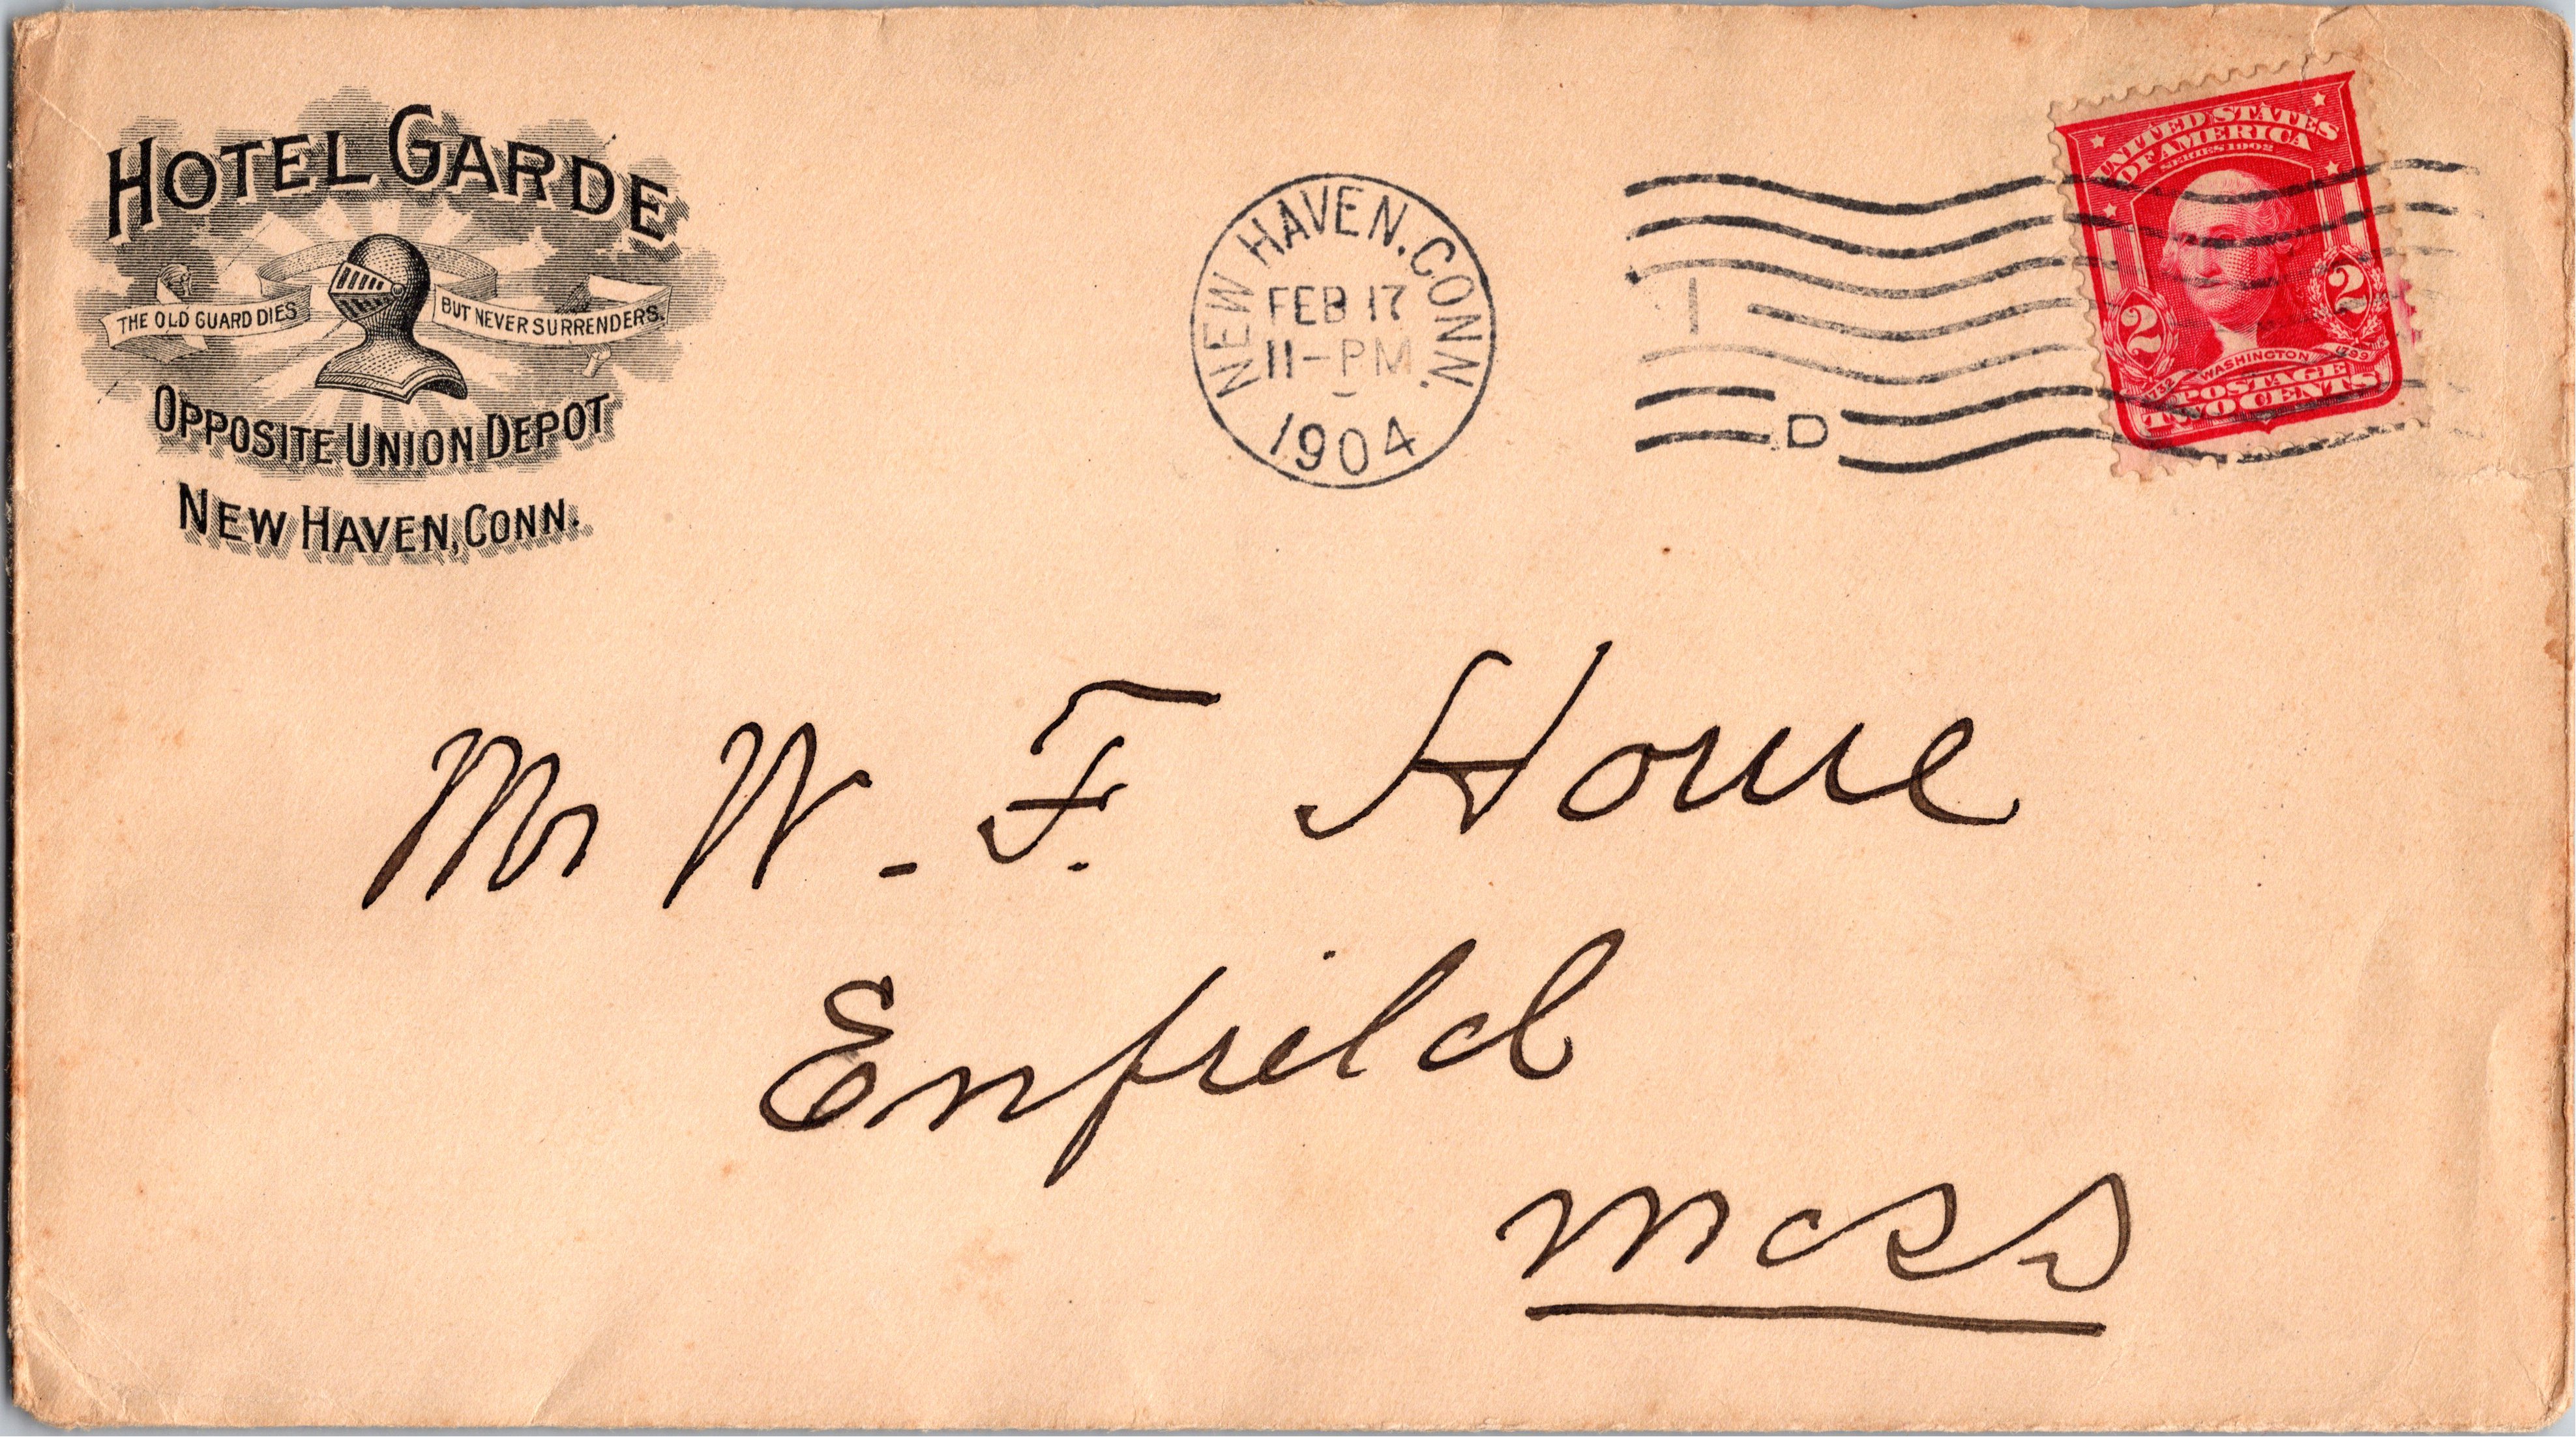 HOTEL GARDE
THE OLD GUARD DIES BUT NEVER SURRENDERS.
OPPOSITE UNION DEPOT
NEW HAVEN, CONN.
NEW HAVEN. CONN.
FEB 17
11-PM
1904
1
D
UNITED STATES
OF AMERICA
SERIES 1902
2 2
1732 WASHINGTON 1799
POSTAGE
TWO CENTS
Mr W. F. Howe
Enfield
Mass